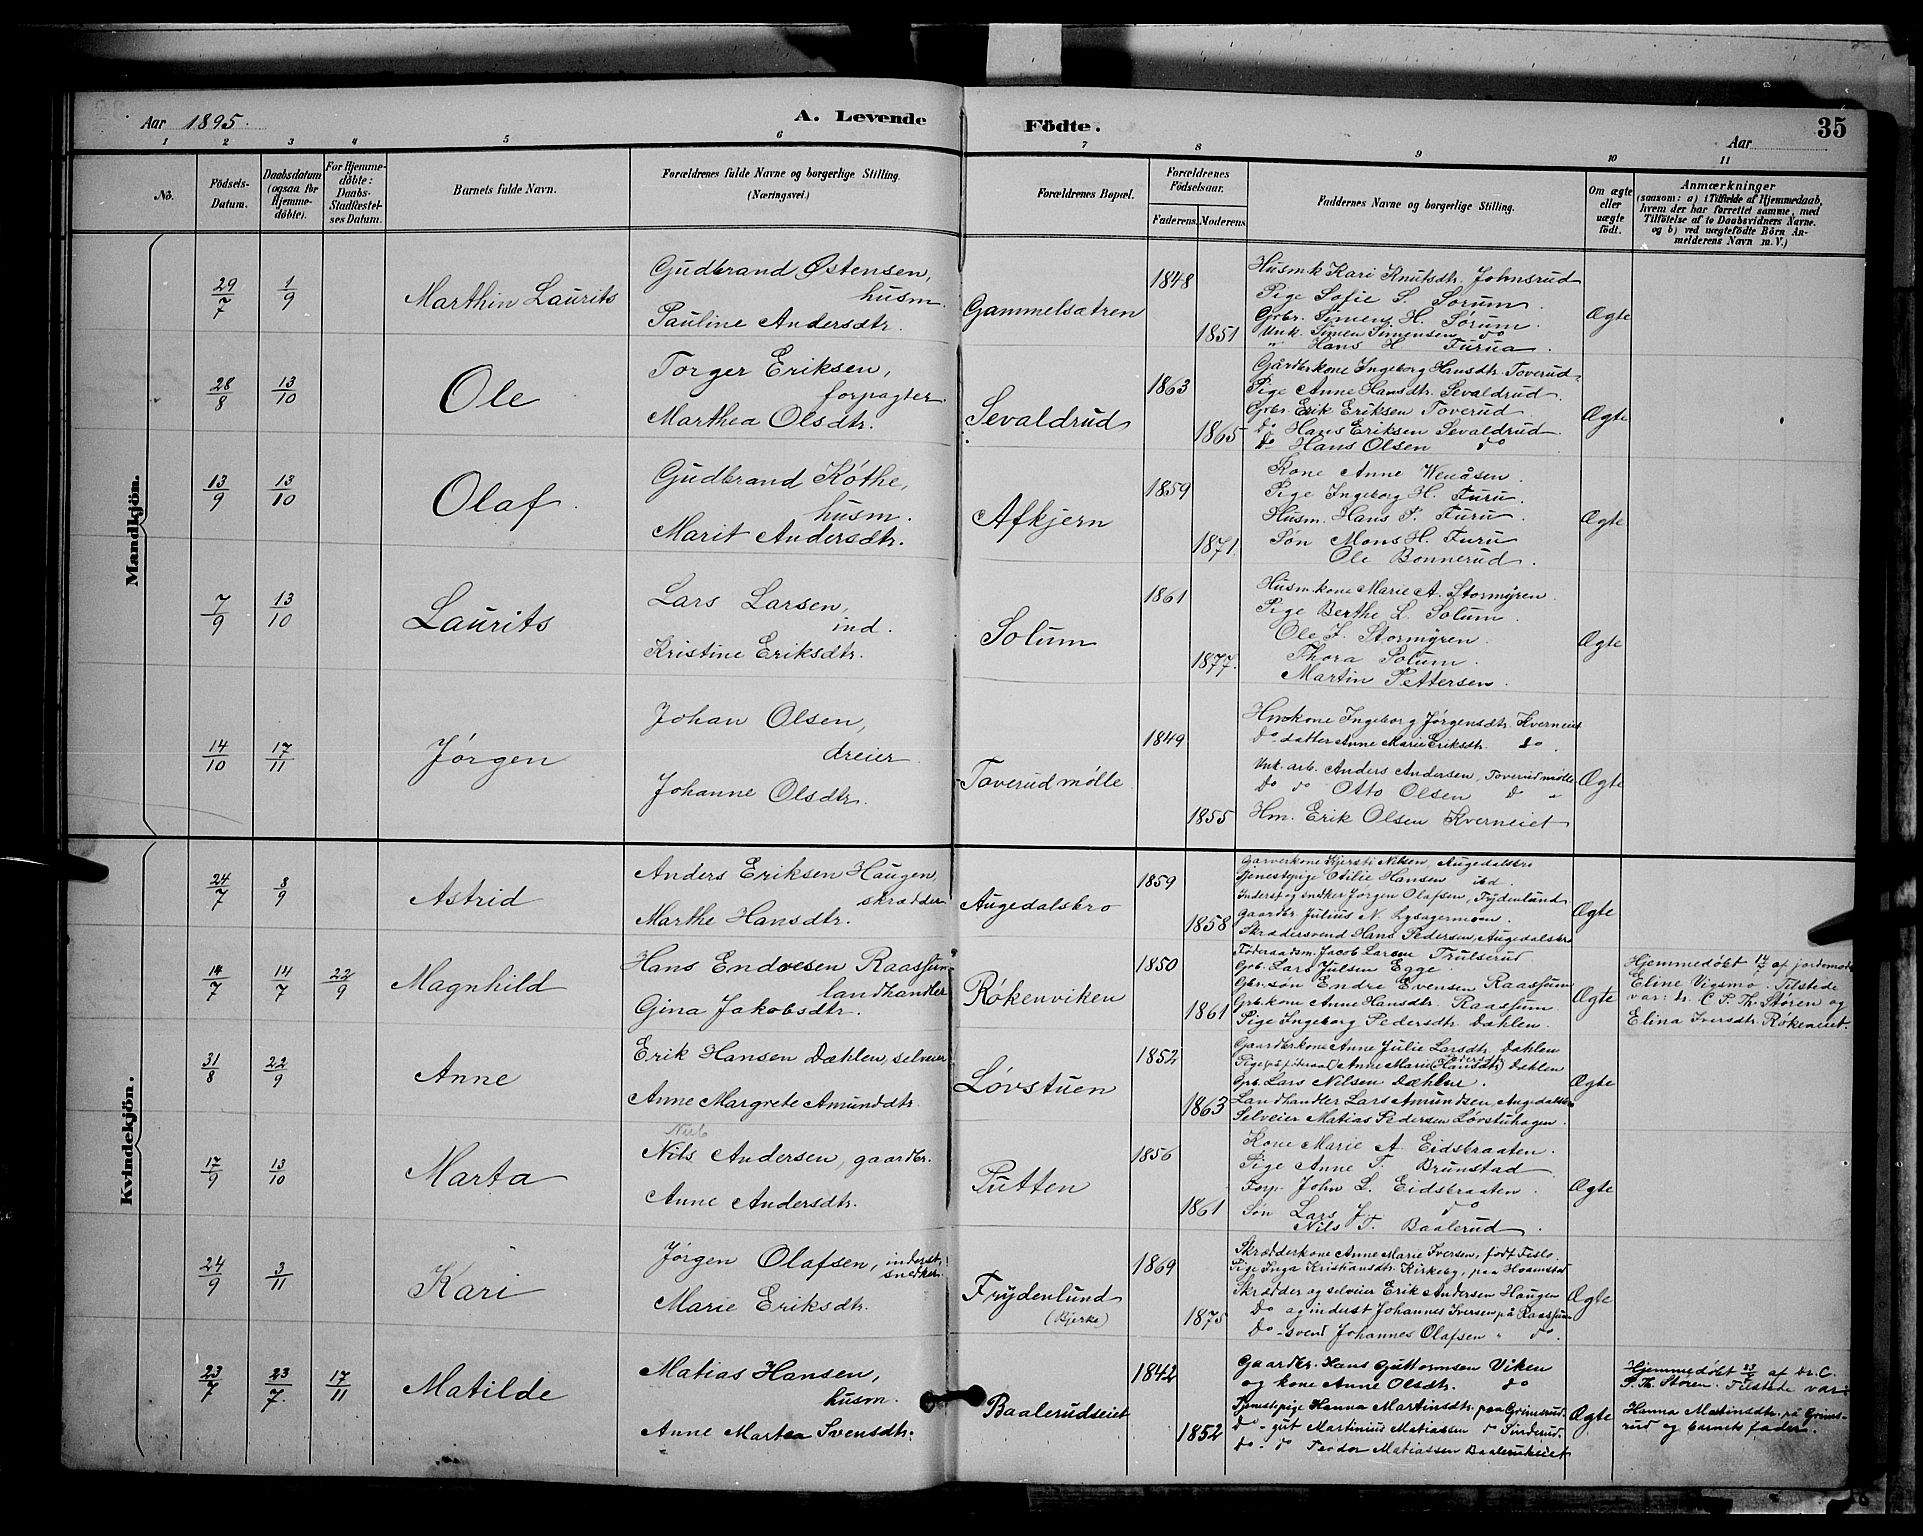 Aar 1895.
A. Levende Födte.
Aar
35
1 2 3 4 5 6 7 8 9 10 11
No.
Födsels-Datum.
Daabsdatum (ogsaa for Hjemmedöbte).
For Hjemmedöbte: Daabs-Stadfæstelses Datum.
Barnets fulde Navn.
Forældrenes fulde Navne og borgerlige Stilling. (Næringsvei.)
Forældrenes Bopæl.
Forældrenes Födselsaar.
Faderens. Moderens.
Faddernes Navne og borgerlige Stilling.
Om ægte eller uægte födt.
Anmærkninger
(saasom: a) i Tilfælde af Hjemmedaab,
hvem der har forrettet samme, med
Tilföielse af to Daabsvidners Navne.
og b) ved uægtefödte Börn An-
melderens Navn m. V.)
Mandkjön.
29/7 1/9 Marthin Laurits
Gudbrand Østensen,
husm.
Pauline Andersdtr.
Gammelsætren
1848
1851
Husmk Kari Knutsdtr. Johnsrud
Pige Sofie S. Sorum.
Grbr. Simen H. Sørum.
Unk. Simen Simensen do
" Hans H. Furua.
Ægte
28/8 13/10 Ole
Torger Eriksen,
forpagter.
Marthea Olsdtr.
Sevaldrud
1863
1865
Gårderkone Ingeborg Hansdtr. Toverud.
Pige Anne Hansdtr. Sevaldrud.
Grbr. Erik Eriksen Toverud.
do Hans Eriksen Sevaldrud.
do Hans Olsen do
Ægte
13/9 13/10 Olaf.
Gudbrand Køthe,
husm.
Marit Andersdtr.
Afkjern
1859
1871.
Kone Anne Wenåsen.
Pige Ingeborg H. Furu.
Husm. Hans P. Furu.
Søn Mons H. Furu
Ole Bonnerud.
Ægte
7/9 13/10 Laurits
Lars Larsen,
ind.
Kristine Eriksdtr.
Solum
1861
1877.
Husm.kone Marie A. Stormyren.
Pige Berthe L. Solum.
Ole J. Stormyren.
Thora Solum.
Martin Pettersen.
Ægte
14/10 17/11 Jørgen
Johan Olsen,
dreier.
Johanne Olsdtr.
Toverudmølle
1849
1855
Hmkone Ingeborg Jørgensdtr. Kverneiet
do datter Anne Marie Eriksdtr. do.
Unk. arb. Anders Andersen, Toverudmølle
do do Otto Olsen do
Hm. Erik Olsen Kverneiet
Ægte
Kvindekjön.
24/7 8/9 Astrid
Anders Eriksen Haugen,
skrædder
Marthe Hansdtr.
Augedalsbro
1859
1858
Garverkone Kjersti Nilsen, Augedalsbro
Tjenestpige Otilie Hansen ibd.
Inderst og snedker Jørgen Olafsen, Frydenlund
Gaardbr Julius N. Lysagermoen.
Skræddersvend Hans Pedersen, Augedalsbro
Ægte
14/7 14/7 22/9 Magnhild
Hans Endresen Raassum
landhandler
Gina Jakobsdtr.
Røkenviken
1850
1861
Føderaadsm. Jacob Larsen Trulserud
Grb. Lars Julsen Egge.
Gbr. søn Endre Evensen Raassum
Grb. kone Anne Hansdtr. Raassum
Pige Ingeborg Pedersdtr. Dæhlen.
Ægte
Hjemmedøbt 14/7 af jordemoder
Eline Vigsmo. Tilstede
var: dr. C. P. Th. Støren og
Elina Iversdtr. Røkeneiet.
31/8 22/9 Anne
Erik Hansen Dæhlen, selveier
Anne Margrete Amunddtr.
Løvstuen
1852
1863
Gaarderkone Anne Julie Larsdtr. Dæhlen
Pige (på føderaad) Anne Marie Hansdtr. Dæhlen
Grb. Lars Nilsen Dæhlen.
Landhandler Lars Amundsen, Augedalsbro
Selveier Matias Pedersen Løvstuhagen.
Ægte
17/9 13/10 Marta
Nils Andersen, gaardbr.
Anne Andersdtr.
Putten
1856
1861
Kone Marie A. Eidsbraaten.
Pige Anne T. Brunstad
Forp. John L. Eidsbraaten.
Søn Lars J. do
Nils T. Baalerud.
Ægte
24/9 3/11 Kari
Jørgen Olafsen, inderst,
snedker.
Marie Eriksdtr.
Frydenlund
(Bjerke)
1869
1875
Skrædderkone Anne Marie Iversen, født Teslo.
Pige Inga Kristiansdtr. Kirkeby, paa Hvamstad
Skrædder og selveier Erik Andersen Haugen
do og inderst Johannes Iversen på Raassum
do - svend Johannes Olafsen " do.
Ægte
23/7 23/7. 17/11 Matilde
Matias Hansen,
husm.
Anne Martea Svensdtr.
Baalerudseiet
1842
1852
Gaardbr. Hans Guttormsen Viken
og kone Anne Olsdtr. do
Tjenestepige Hanna Martinsdtr. paa Grimsrud.
do - gut Martinius Matiassen do Sinderud.
do - do Teodor Matiassen Baalerudeiet
Ægte
Hjemmedøbt 23/7 af dr. C.
P. Th. Støren. Tilstede var:
Hanna Martinsdtr. på Grims-
rud og barnets fader.